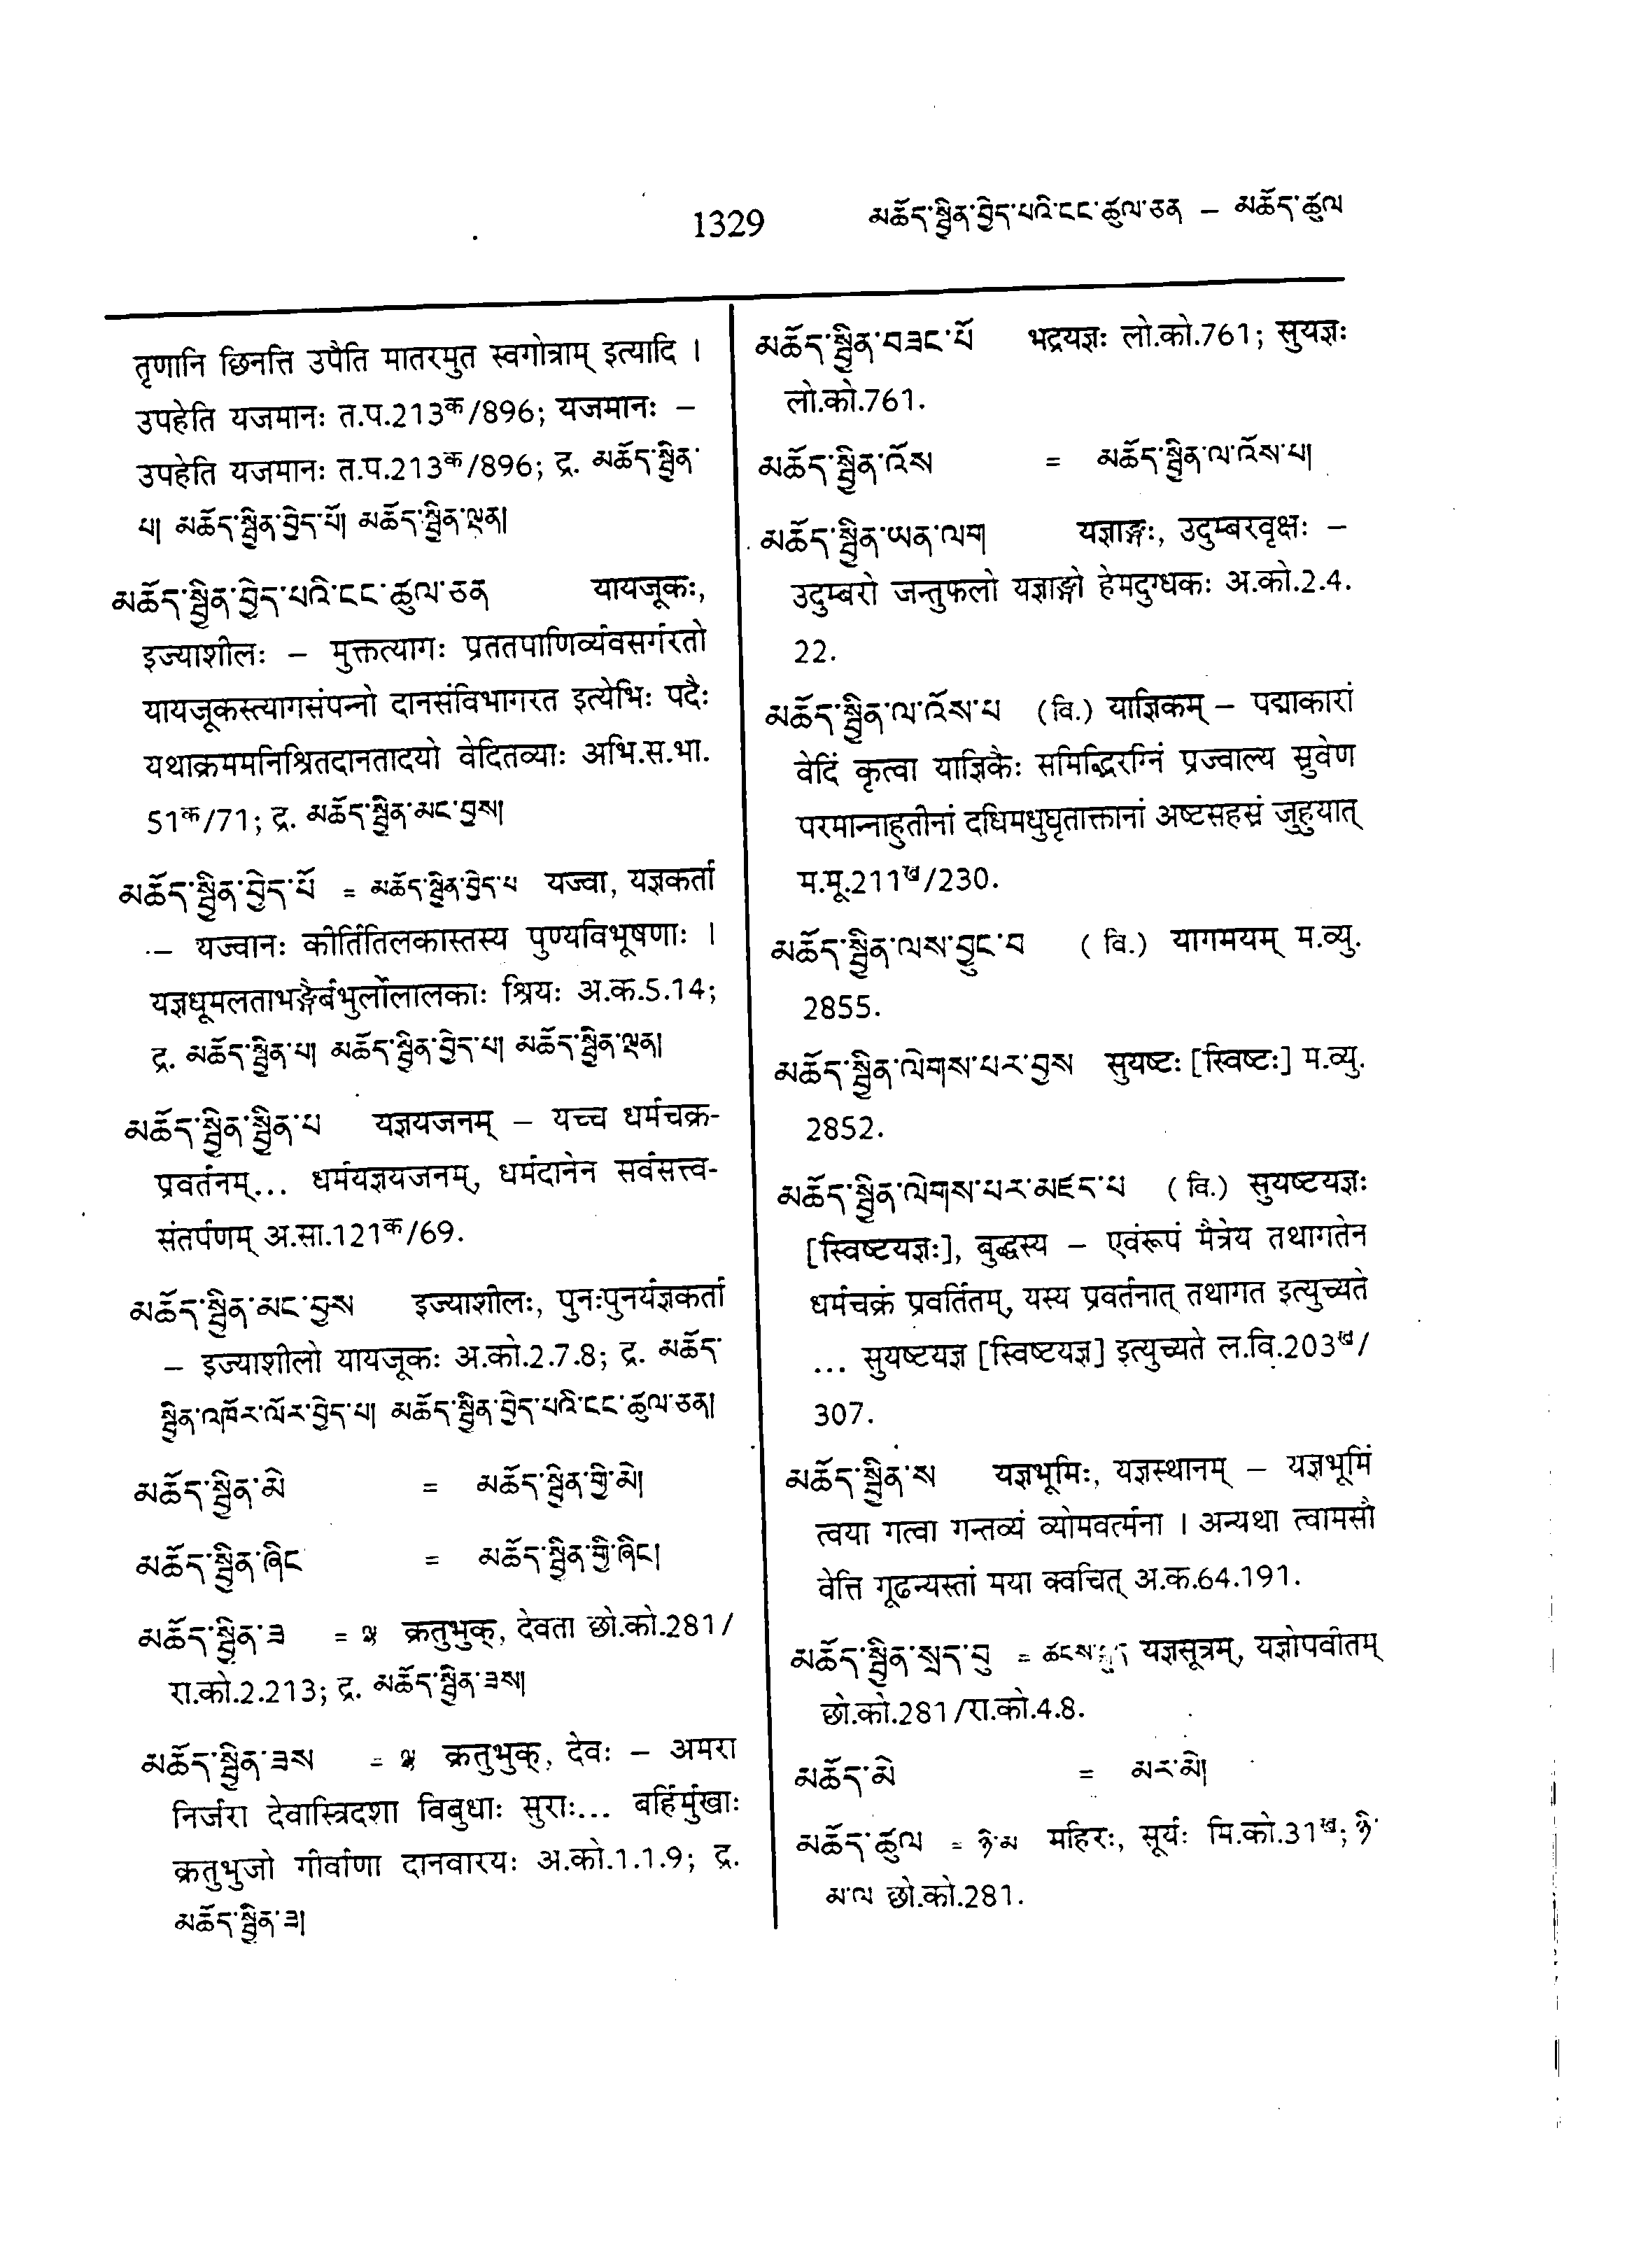 1329 མཆོད་སྦྱིན་བྱེད་པའི་ངང་ཚུལ་ཅན – མཆོད་ཚུལ
तृणानि छिनत्ति उपैति मातरमुत स्वगोत्राम् इत्यादि ।
उपहेति यजमानः त.प.213क/896; यजमानः –
उपहेति यजमानः त.प.213क/896; द्र. མཆོད་སྦྱིན་
པ། མཆོད་སྦྱིན་བྱེད་པོ། མཆོད་སྦྱིན་ལྡན།
མཆོད་སྦྱིན་བྱེད་པའི་ངང་ཚུལ་ཅན यायजूकः,
इज्याशीलः – मुक्तत्यागः प्रततपाणिर्व्यवसर्गरतो
यायजूकस्त्यागसंपन्नो दानसंविभागरत इत्येभिः पदैः
यथाक्रममनिश्रितदानतादयो वेदितव्याः अभि.स.भा.
51क/71; द्र. མཆོད་སྦྱིན་མང་བྱས།
མཆོད་སྦྱིན་བྱེད་པོ = མཆོད་སྦྱིན་བྱེད་པ यज्वा, यज्ञकर्ता
– यज्वानः कीर्तितिलकास्तस्य पुण्यविभूषणाः ।
यज्ञधूमलताभङ्गैर्बभुर्लोलालकाः श्रियः अ.क.5.14;
द्र. མཆོད་སྦྱིན་པ། མཆོད་སྦྱིན་བྱེད་པ། མཆོད་སྦྱིན་ལྡན།
མཆོད་སྦྱིན་སྦྱིན་པ यज्ञयजनम् – यच्च धर्मचक्र-
प्रवर्तनम्... धर्मयज्ञयजनम्, धर्मदानेन सर्वसत्त्व-
संतर्पणम् अ.सा.121क/69.
མཆོད་སྦྱིན་མང་བྱས इज्याशीलः, पुनःपुनर्यज्ञकर्ता
– इज्याशीलो यायजूकः अ.को.2.7.8; द्र. མཆོད་
སྦྱིན་འཁོར་ལོར་བྱེད་པ། མཆོད་སྦྱིན་བྱེད་པའི་ངང་ཚུལ་ཅན།
མཆོད་སྦྱིན་མེ = མཆོད་སྦྱིན་གྱི་མེ།
མཆོད་སྦྱིན་ཞིང = མཆོད་སྦྱིན་གྱི་ཞིང།
མཆོད་སྦྱིན་ཟ = ལྷ क्रतुभुक्, देवता छो.को.281/
रा.को.2.213; द्र. མཆོད་སྦྱིན་ཟས།
མཆོད་སྦྱིན་ཟས = ལྷ क्रतुभुक्, देवः – अमरा
निर्जरा देवास्त्रिदशा विबुधाः सुराः... बर्हिर्मुखाः
क्रतुभुजो गीर्वाणा दानवारयः अ.को.1.1.9; द्र.
མཆོད་སྦྱིན་ཟ།
མཆོད་སྦྱིན་བཟང་པོ भद्रयज्ञः लो.को.761; सुयज्ञः
लो.को.761.
མཆོད་སྦྱིན་འོས = མཆོད་སྦྱིན་ལ་འོས་པ།
མཆོད་སྦྱིན་ཡན་ལག यज्ञाङ्गः, उदुम्बरवृक्षः –
उदुम्बरो जन्तुफलो यज्ञाङ्गो हेमदुग्धकः अ.को.2.4.
22.
མཆོད་སྦྱིན་ལ་འོས་པ (वि.) याज्ञिकम् – पद्माकारां
वेदिं कृत्वा याज्ञिकैः समिद्भिरग्निं प्रज्वाल्य स्रुवेण
परमान्नाहुतीनां दधिमधुघृताक्तानां अष्टसहस्रं जुहुयात्
म.मू.211ख/230.
མཆོད་སྦྱིན་ལས་བྱུང་བ (वि.) यागमयम् म.व्यु.
2855.
མཆོད་སྦྱིན་ལེགས་པར་བྱས सुयष्टः [स्विष्टः] म.व्यु.
2852.
མཆོད་སྦྱིན་ལེགས་པར་མཛད་པ (वि.) सुयष्टयज्ञः
[स्विष्टयज्ञः], बुद्धस्य – एवंरूपं मैत्रेय तथागतेन
धर्मचक्रं प्रवर्तितम्, यस्य प्रवर्तनात् तथागत इत्युच्यते
... सुयष्टयज्ञ [स्विष्टयज्ञ] इत्युच्यते ल.वि.203ख/
307.
མཆོད་སྦྱིན་ས यज्ञभूमिः, यज्ञस्थानम् – यज्ञभूमिं
त्वया गत्वा गन्तव्यं व्योमवर्त्मना । अन्यथा त्वामसौ
वेत्ति गूढन्यस्तां मया क्वचित् अ.क.64.191.
མཆོད་སྦྱིན་སྲད་བུ = ཚངས་ यज्ञसूत्रम्, यज्ञोपवीतम्
छो.को.281/रा.को.4.8.
མཆོད་མེ = མར་མེ།
མཆོད་ཚུལ = ཉི་མ महिरः, सूर्यः मि.को.31ख; ཉི་
མ་ལ छो.को.281.